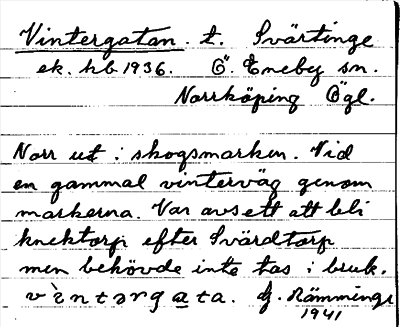 Vintergatan. t. Svärtinge
ek. kb 1936. Ö. Eneby sn.
Norrköping Ögl.
Norr ut i skogsmarken. Vid
en gammal vinterväg genom
markerna. Var avsett att bli
knektorp efter Svärdtorp
men behövde inte tas i bruk.
vìntərgata. Hj. Rämminge
1941